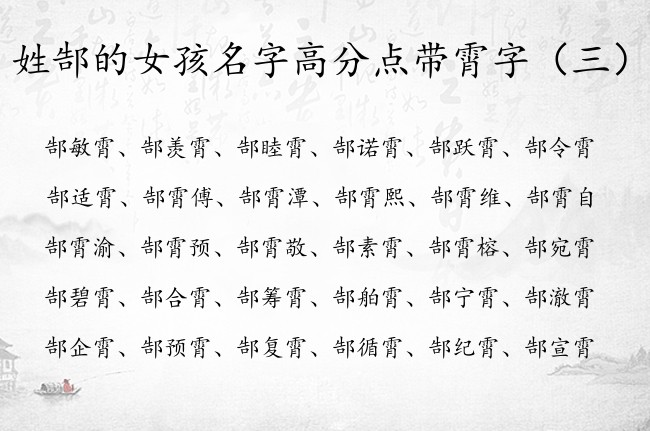 姓郜的女孩名字高分点带霄字（三）
郜敏霄、郜羡霄、郜睦霄、郜诺霄、郜跃霄、郜令霄
郜适霄、郜霄傅、郜霄潭、郜霄熙、郜霄维、郜霄自
郜霄渝、郜霄预、郜霄敬、郜素霄、郜霄榕、郜宛霄
郜碧霄、郜合霄、郜筹霄、郜舶霄、郜宁霄、郜澈霄
郜企霄、郜预霄、郜复霄、郜循霄、郜纪霄、郜宣霄